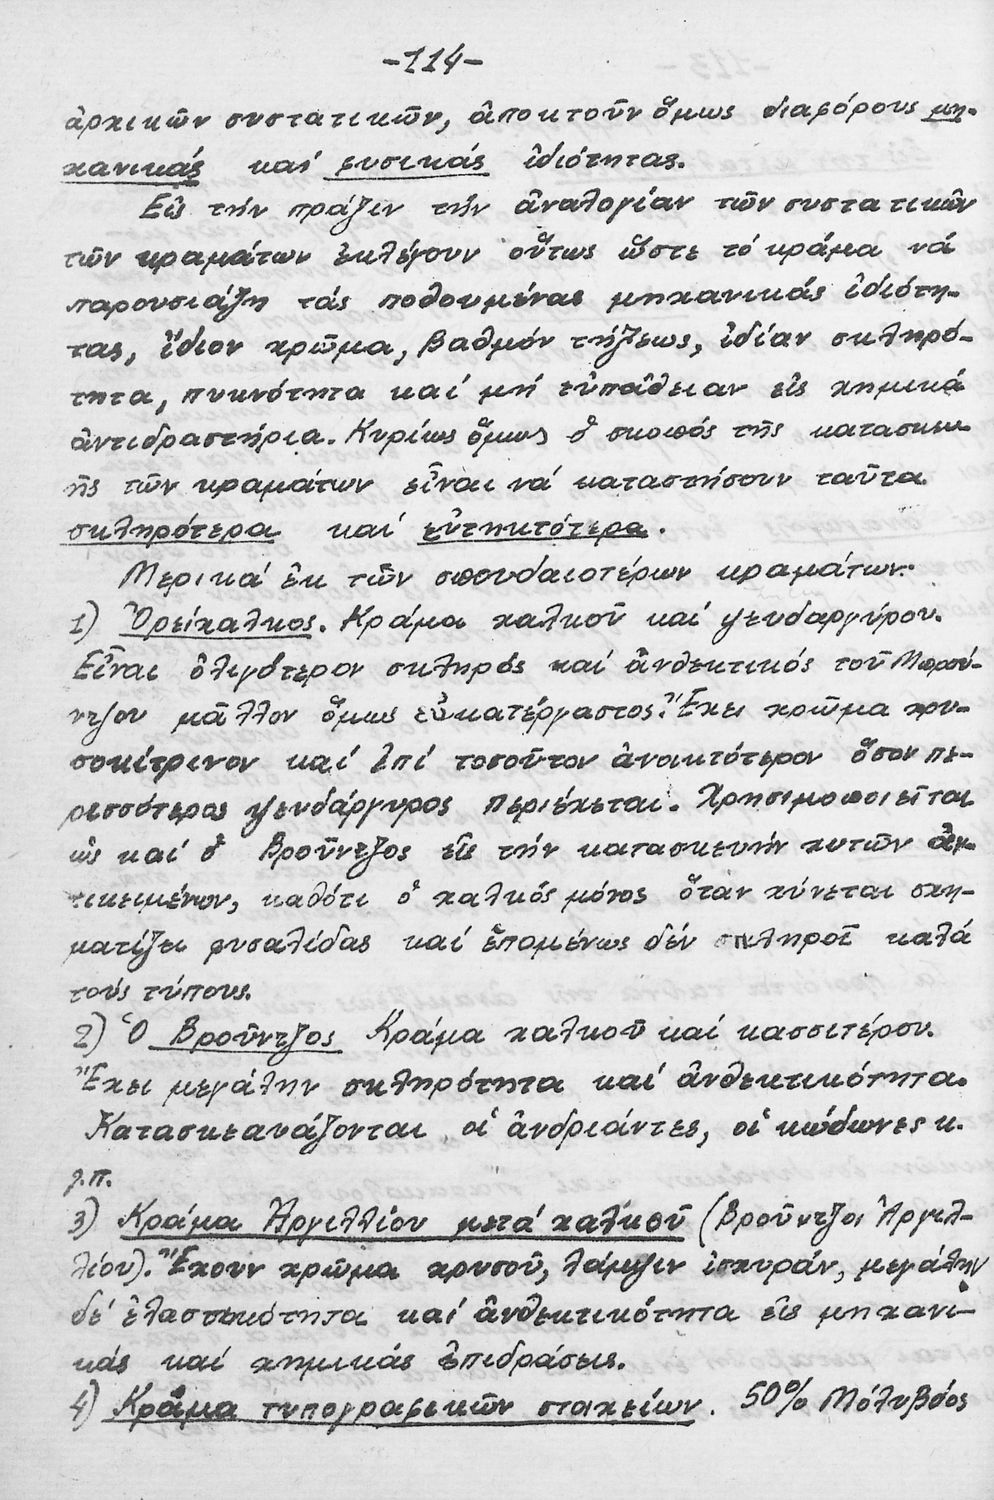 -114-
ἀρχικῶν συστατικῶν, ἀποκτοῦν ὅμως διαφόρους μη-
χανικάς καί φυσικάς ἰδιότητας.
Εἰς τήν πρᾶξιν τήν ἀναλογίαν τῶν συστατικῶν
τῶν κραμάτων ἐκλέγουν οὕτως ὥστε τό κρᾶμα νά
παρουσιάζη τάς ποθουμένας μηχανικάς ἰδιότη-
τας, ἴδιον χρῶμα, βαθμόν τήξεως, ἰδίαν σκληρό-
τητα, πυκνότητα καί μή εὐπάθειαν εἰς χημικά
ἀντιδραστήρια. Κυρίως ὅμως ὁ σκοπός τῆς κατασκευ
ῆς τῶν κραμάτων εἶναι νά καταστήσουν ταῦτα
σκληρότερα καί εὐτηκτότερα.
Μερικά ἐκ τῶν σπουδαιοτέρων κραμάτων:
1) Ὀρείχαλκος. Κρᾶμα χαλκοῦ καί ψευδαργύρου.
Εἶναι ὀλιγότερον σκληρός καί ἀνθεκτικός τοῦ Μπρού-
ντζου μᾶλλον ὅμως εὐκατέργαστος. Ἔχει χρῶμα χρυ-
σοκίτρινον καί ἐπί τοσοῦτον ἀνοικτότερον ὅσον πε-
ρισσότερος ψευδάργυρος περιέχεται. Χρησιμοποιεῖται
ὡς καί ὁ Βροῦντζος εἰς τήν κατασκευήν χυτῶν ἀν-
τικειμένων, καθότι ὁ χαλκός μόνος ὅταν χύνεται σχη-
ματίζει φυσαλίδας καί ἑπομένως δέν σκληροῖ καλά
τούς τύπους.
2) Ὁ Βροῦντζος Κρᾶμα χαλκοῦ καί κασσιτέρου.
Ἔχει μεγάλην σκληρότητα καί ἀνθεκτικότητα.
Κατασκεανάζονται οἱ ἀνδριάντες, οἱ κώδωνες κ.
λ.π.
3) Κρᾶμα Ἀργιλλίου μετά χαλκοῦ (Βροῦντζοι Ἀργιλ-
λίου). Ἔχουν χρῶμα χρυσοῦ, λάμψιν ἰσχυράν, μεγάλην
δέ ἐλαστικότητα καί ἀνθεκτικότητα εἰς μηχανι-
κάς καί χημικάς ἐπιδράσεις.
4) Κρᾶμα τυπογραφικῶν στοιχείων. 50% Μόλυβδος